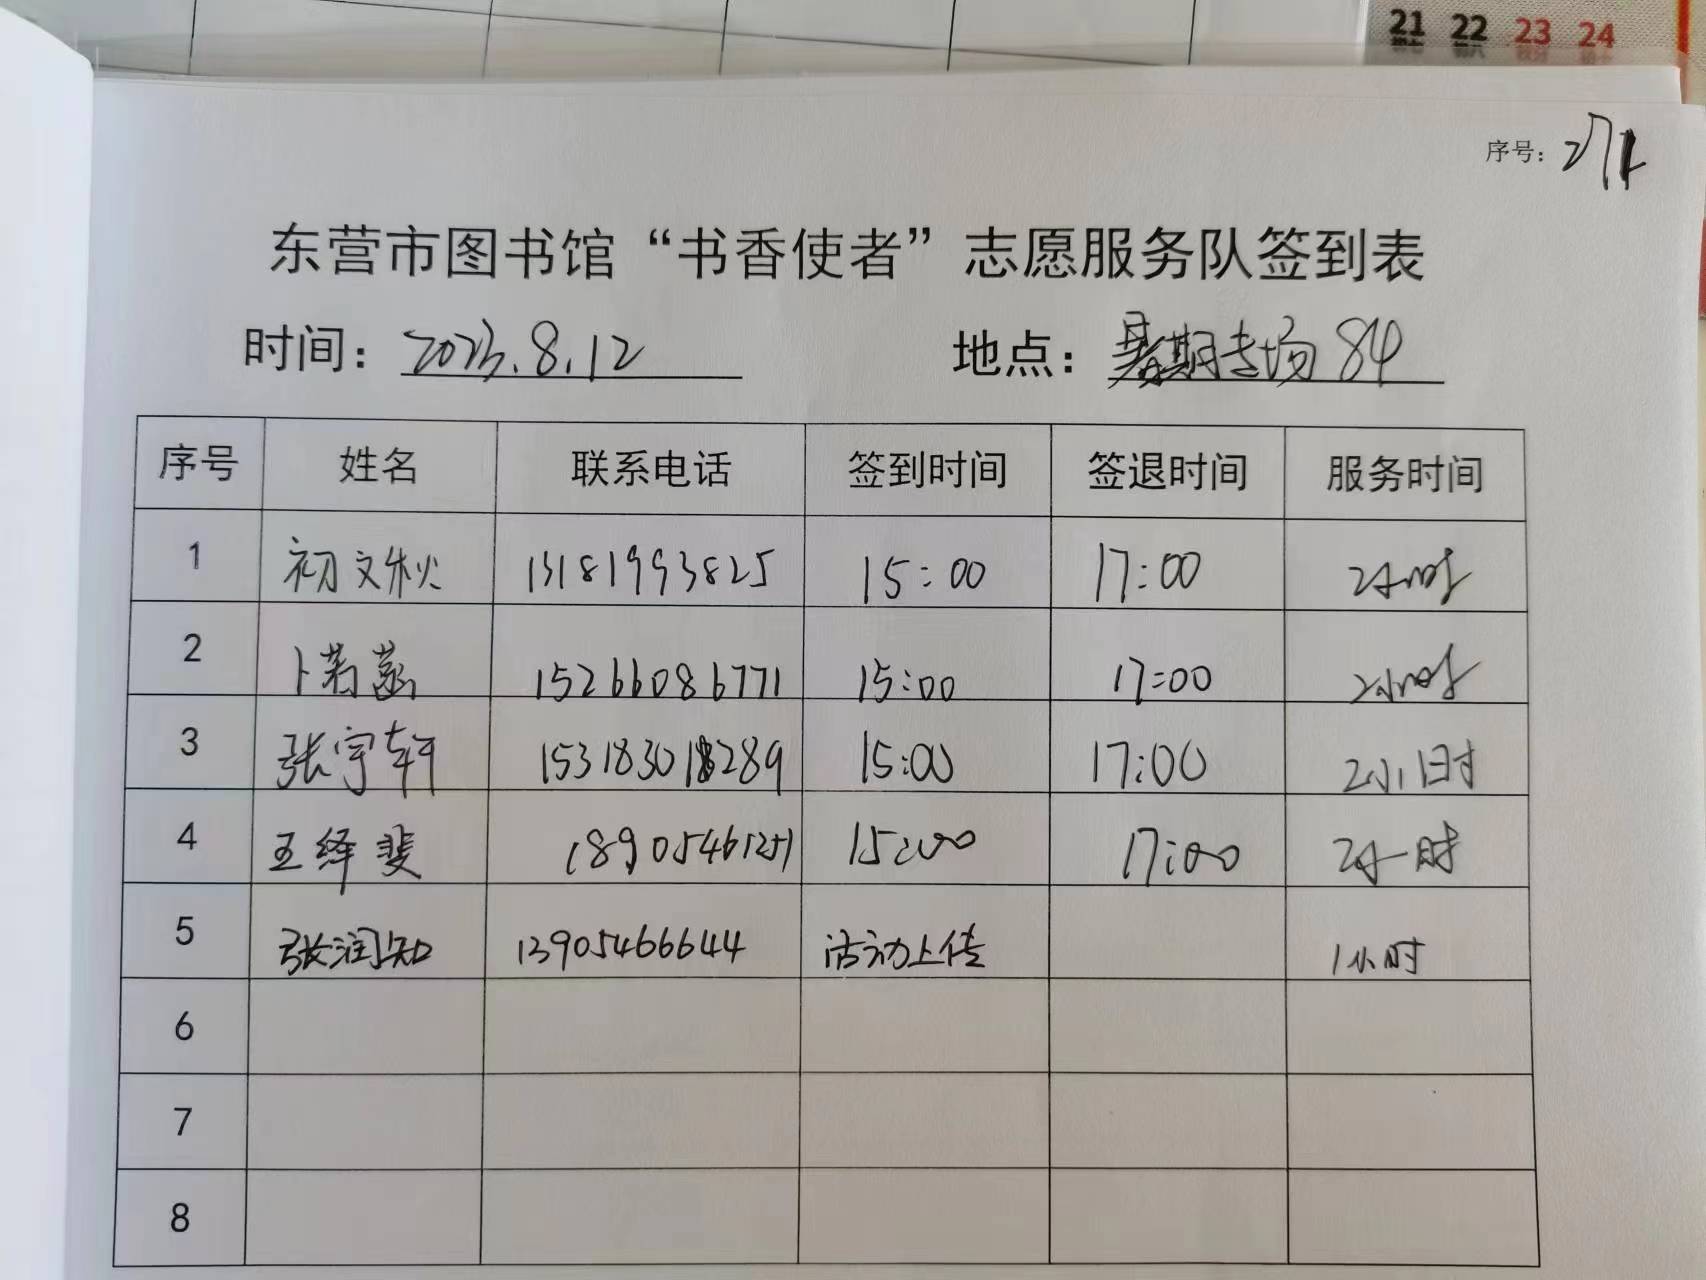 21 22 23 24
序号：271
东营市图书馆“书香使者”志愿服务队签到表
时间：2023.8.12 地点：暑期专场84
序号 姓名 联系电话 签到时间 签退时间 服务时间
1 初文秋 13181993825 15:00 17:00 2小时
2 卜若菡 15266086771 15:00 17:00 2小时
3 张宇轩 15318301289 15:00 17:00 2小时
4 王绎斐 18905461251 15:00 17:00 2小时
5 张润知 13905466644 活动上传 1小时
6
7
8